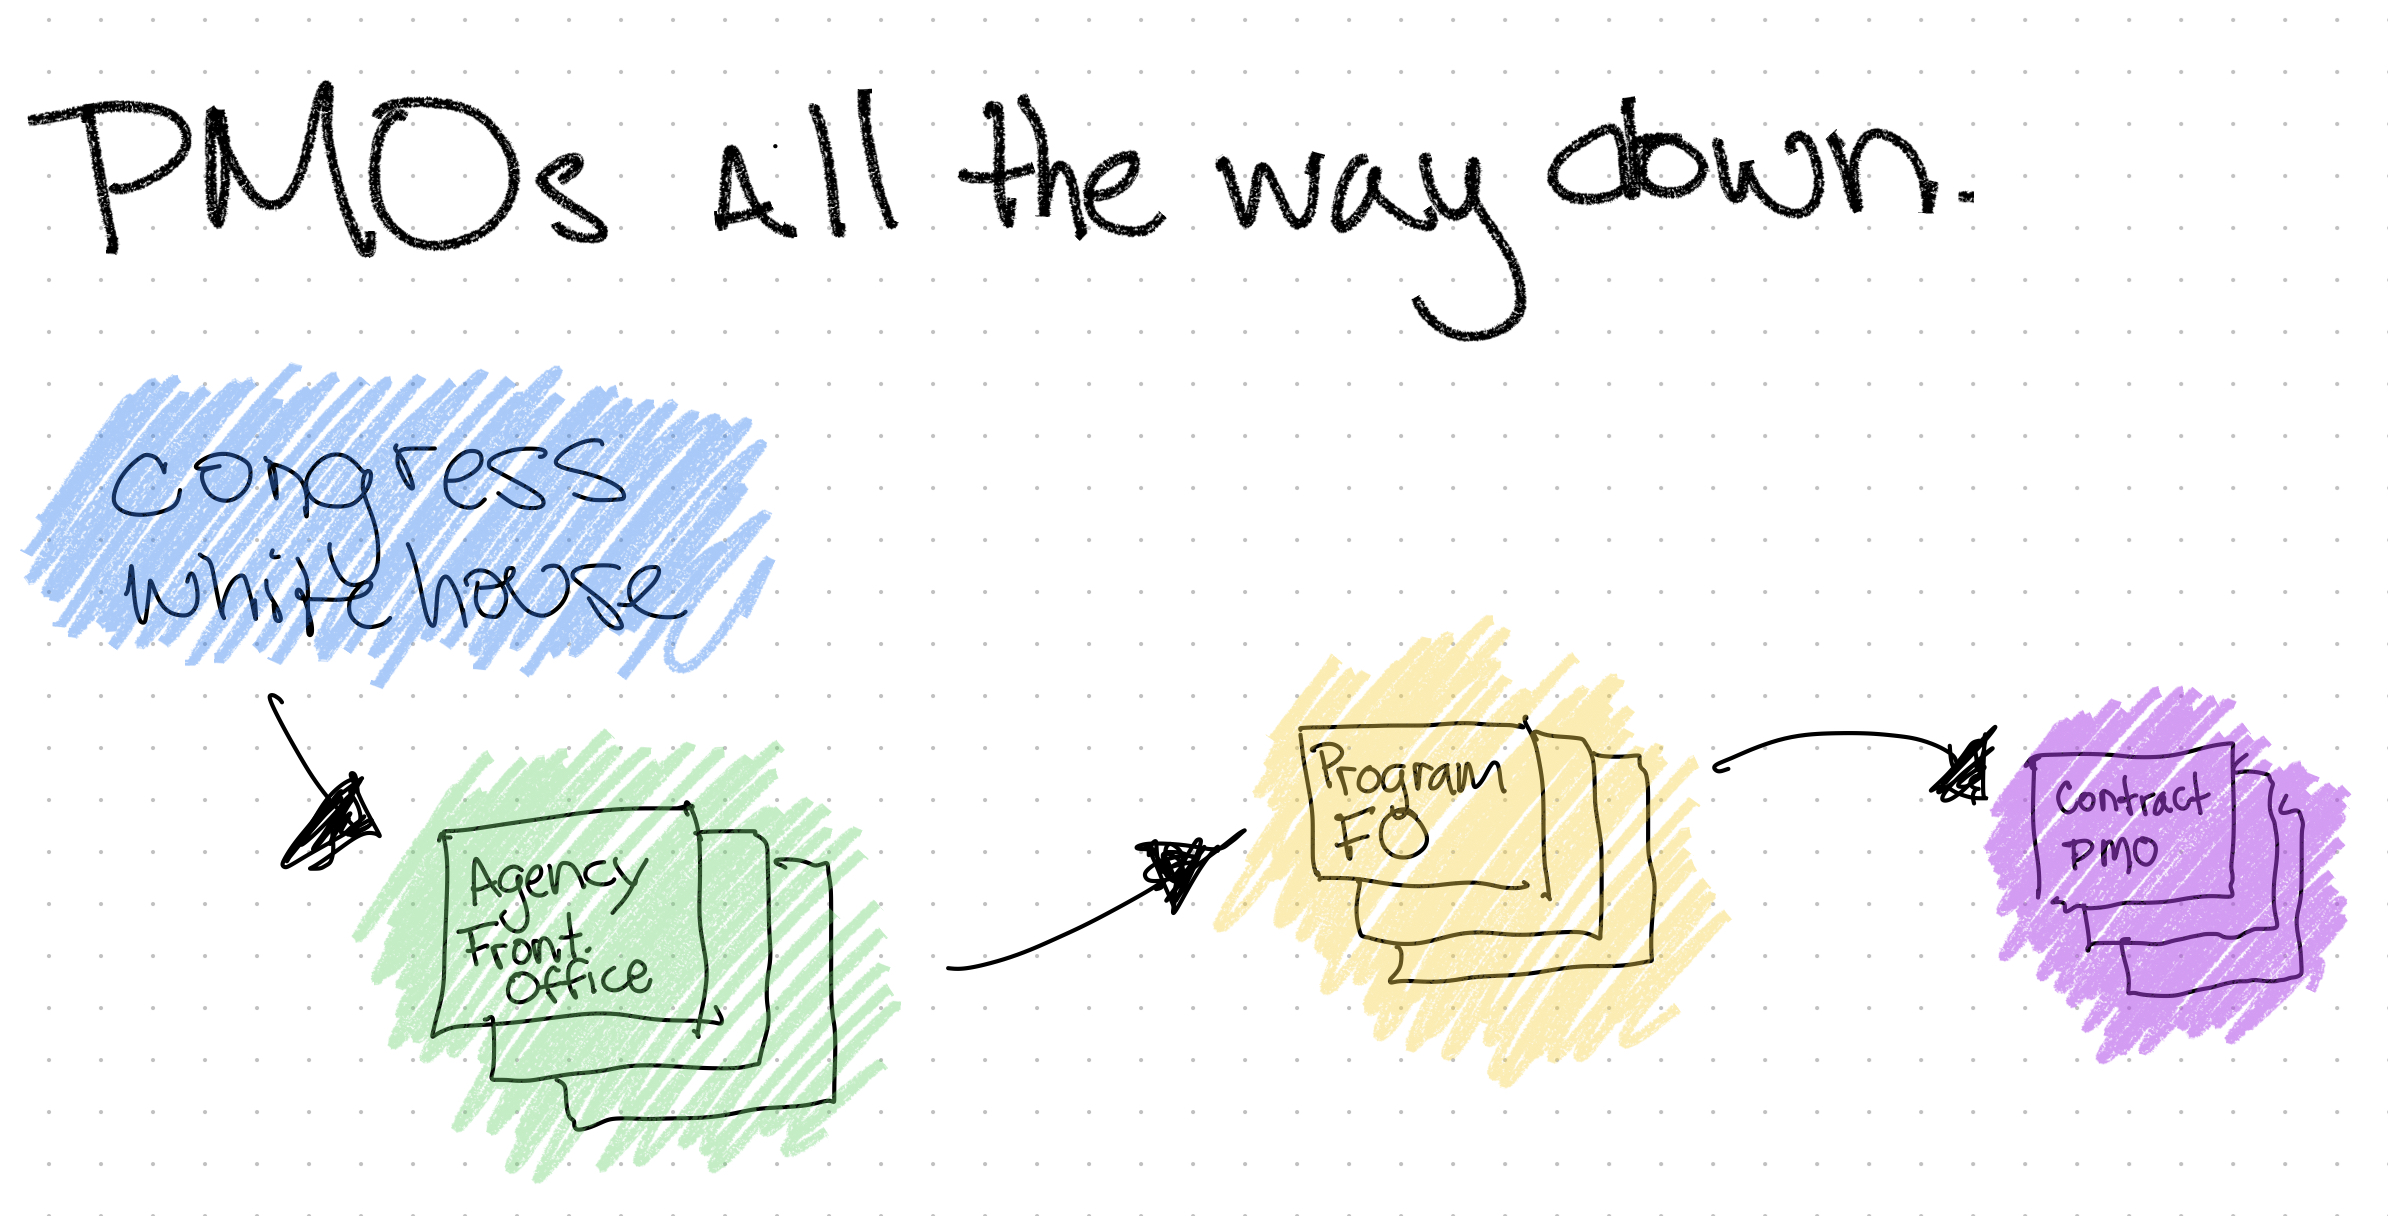 PMOs all the way down.
congress
white house
Agency
Front
Office
Program
FO
Contract
PMO